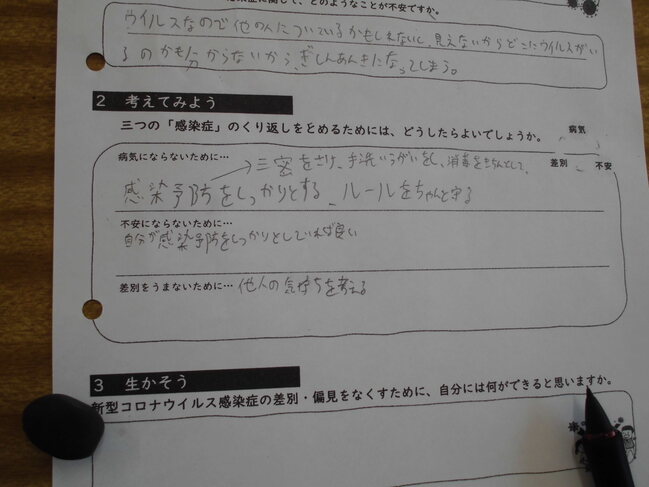 感染症に関して、どのようなことが不安ですか。
ウイルスなので他の人についているかもしれないし、見えないからどこにウイルスがい
るのかも分からないから、ぎしんあんきになってしまう。
2 考えてみよう
三つの「感染症」のくり返しをとめるためには、どうしたらよいでしょうか。
病気
差別 不安
病気にならないために… 三密をさけ、手洗いうがいをし、消毒をきちんとして、
感染予防をしっかりとする、ルールをちゃんと守る
不安にならないために…
自分が感染予防をしっかりとしていれば良い
差別をうまないために… 他人の気持ちを考える
3 生かそう
新型コロナウイルス感染症の差別・偏見をなくすために、自分には何ができると思いますか。